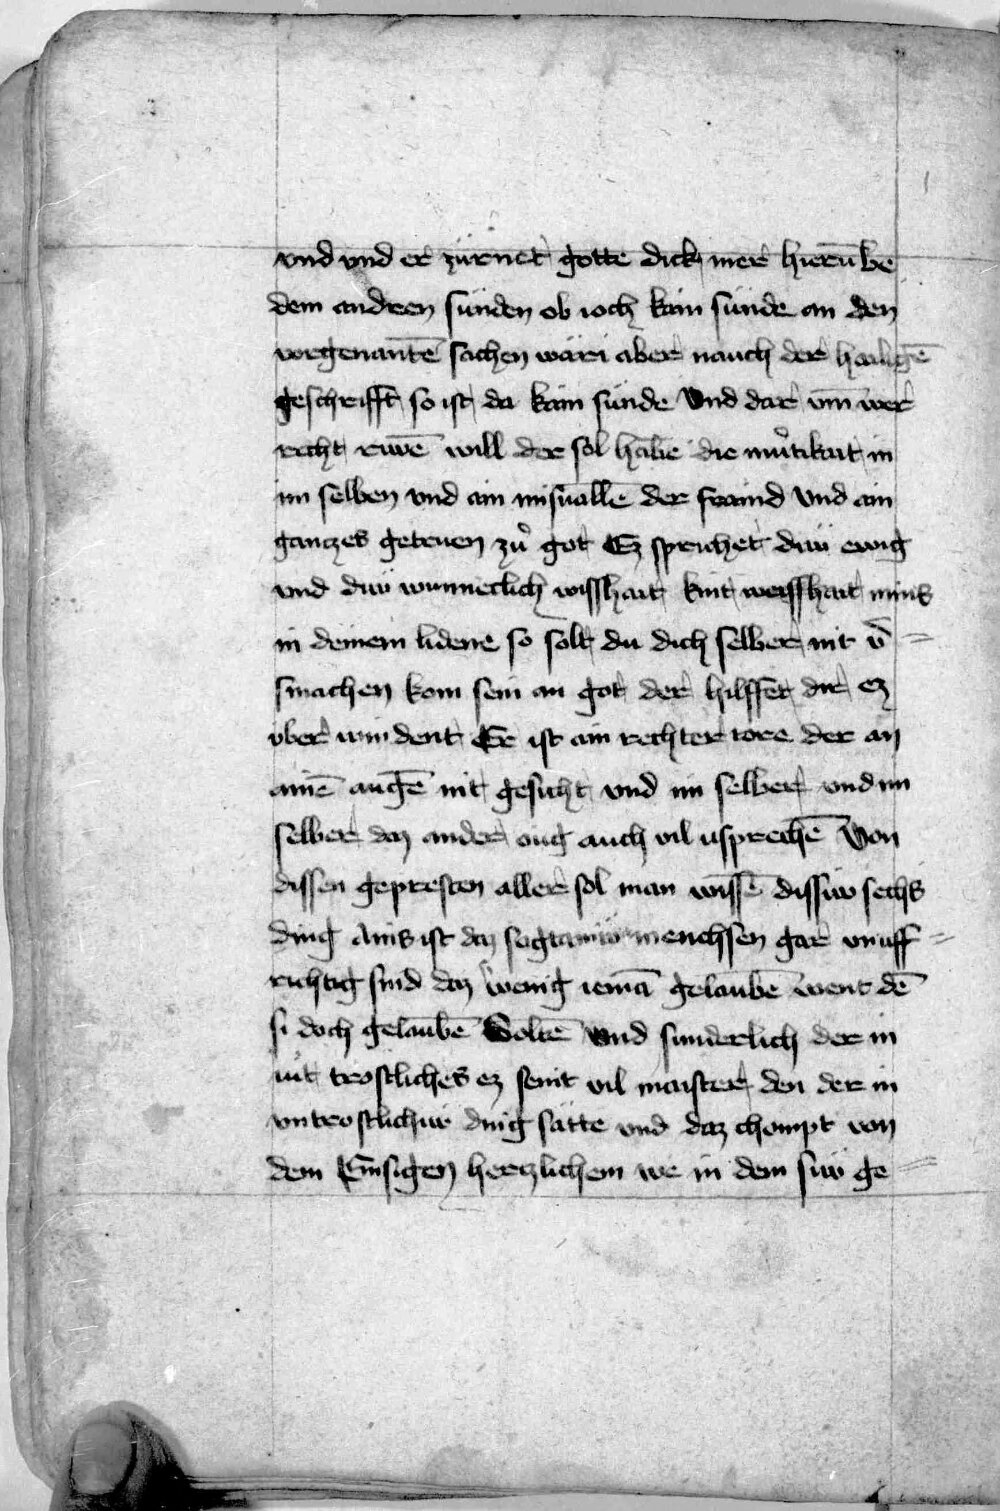 vnd vnd er zürnet gotte dick mer hierūbe
dem andren sünden ob ioch kain sünde an den
vorgenantē sachen wäri aber nauch der hailigē
geschrifft so ist da kain sünde Vnd dar vm̄ wer
recht ruwē will der sol habē die mu̓tikait in
im selben vnd ain misuallē der fraind vnd ain
ganczes getruen zu̓ got Ez sprichet diw ewig
vnd diw wunneclich wisshait kint weisshait mins
in deinem lidene so solt du dich selber nit v̄
smachen kom sein an got der hilffet dir ez
über windent Er ist ain rechter tore der an
ainē augē nit gesicht vnd im selber vnd im
selber daz ander oug auch vil usprechē Von
dissen gepresten aller sol man wissē dissiw sechs
ding Ains ist daz menchsen gar vnuff
richtig sind daz wenig iemā gelaubē went dē
si doch gelaubē Soltē vnd sunderlich der in
iut trostliches ez seint vil maister den der in
vntrostlichiw ding sätte vnd daz chompt von
dem Emsigen hertzlichem we in dem siw ge